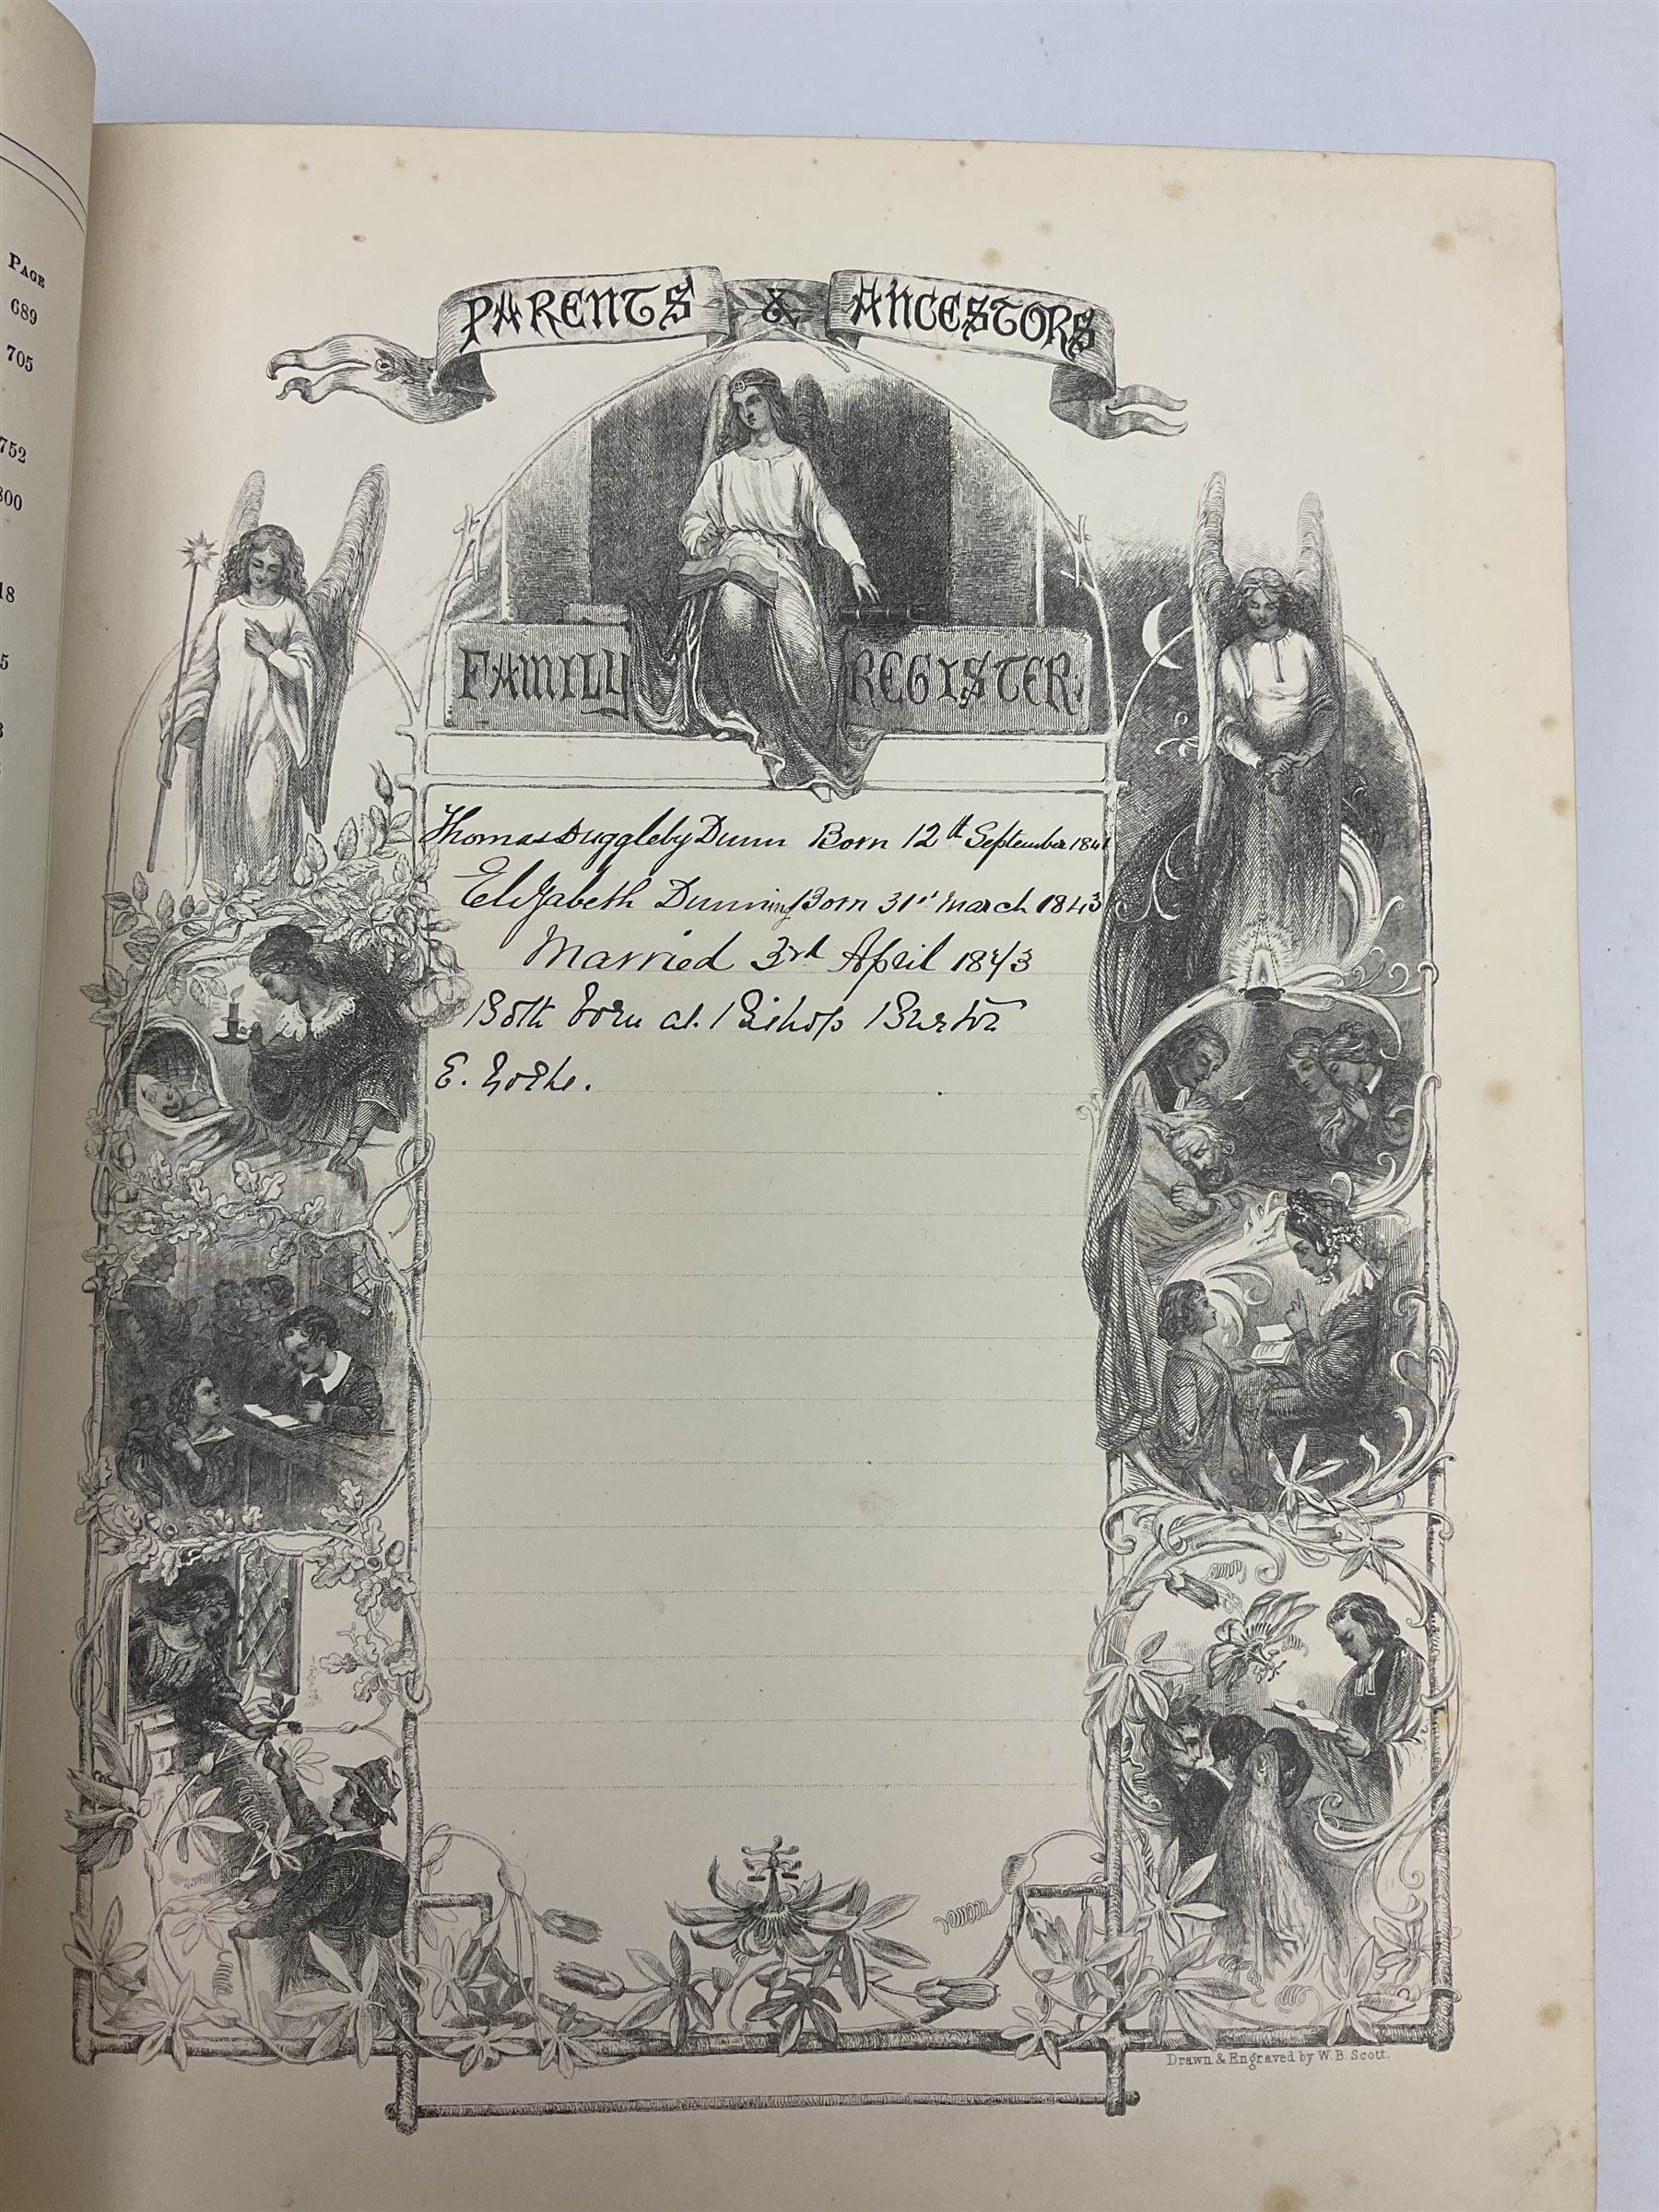 PAGE
689
705
752
800
18
5
3
PARENTS & ANCESTORS
FAMILY REGISTER
Thomas Duggleby Dunn Born 12th September 1841
Elizabeth Dunning Born 31st March 1843
Married 3rd April 1873
Both born at Bishop Burton
E. Yorks.
Drawn & Engraved by W. B. Scott.